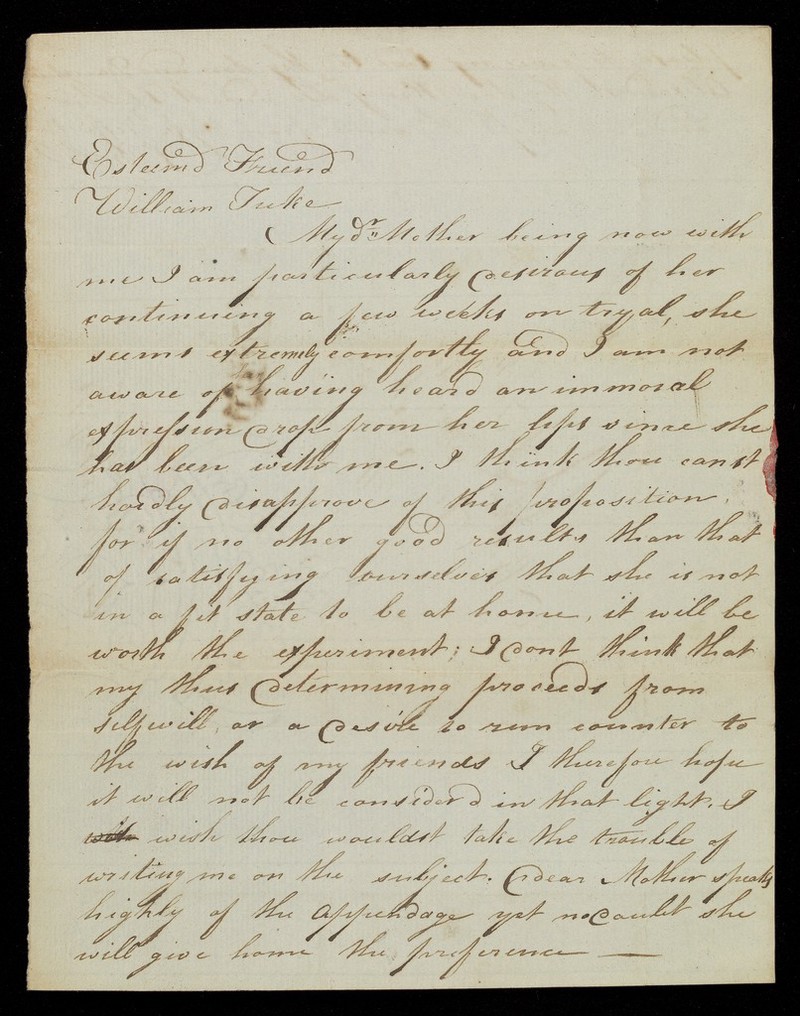 Esteemd Friend
William Tuke
My dr Mother being now with
me I am particularly desirous of her
continuing a few weeks on tryal, she
seems extremely comfortly and I am not
aware of having heard an immoral
expression drop from her lips since she
has been with me. I think thou canst
hardly disapprove of this proposition,
for if no other good results than that
of satisfying ourselves that she is not
in a fit state to be at home, it will be
worth the experiment; I dont think that
my thus determining proceeds from
selfwill, or a desire to run counter to
the wish of my friends I therefore hope
it will not be consider'd in that light. I
wish thou wouldst take the trouble of
writing me on the subject. dear Mother speaks
highly of the Appendage yet no doubt she
will give home the preference —